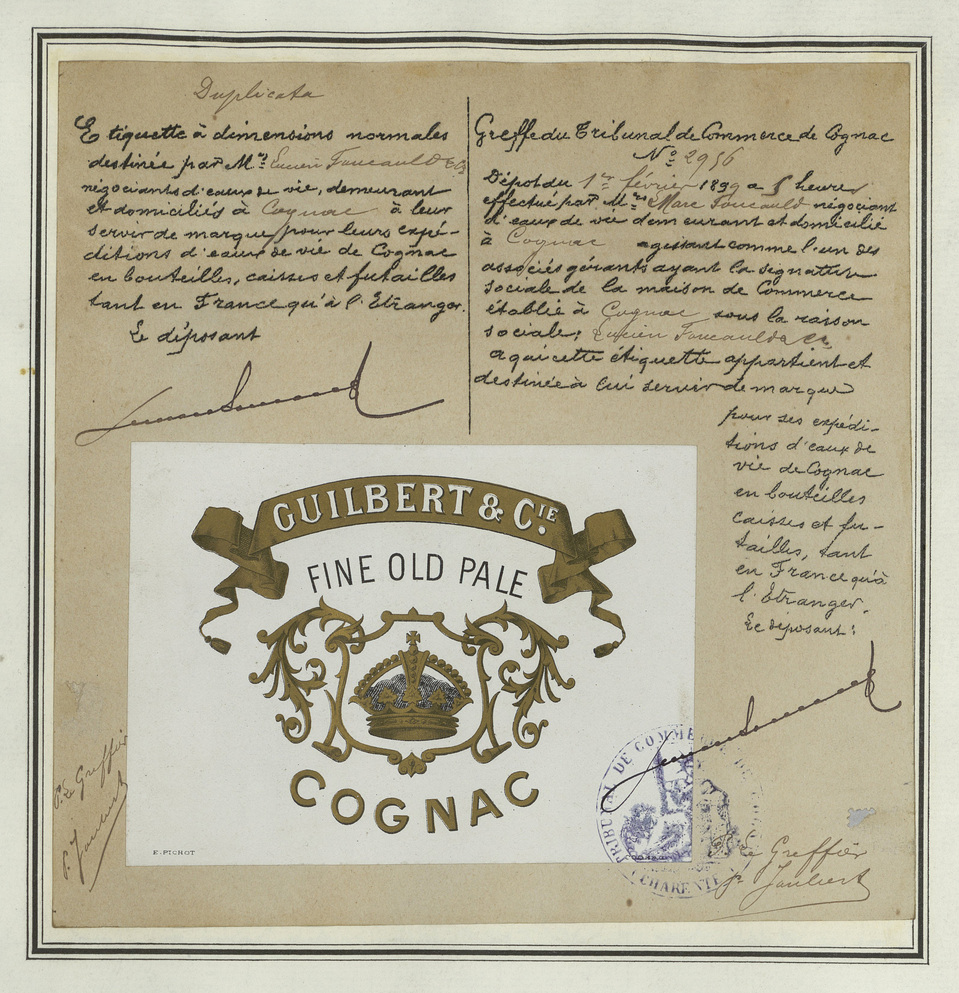 Duplicata
Etiquette à dimensions normales
destinée par Mrs Lucien Foucauld & Co
négociants d'eaux de vie, demeurant
et domiciliés à Cognac à leur
servir de marque pour leurs expé-
ditions d'eaux de vie de Cognac
en bouteilles, caisses et futailles
tant en France qu'à l'Etranger.
Le déposant
Greffe du Tribunal de Commerce de Cognac
No 2956
Dépôt du 1er février 1899 a 5 heures
effectué par Mr Marc Foucauld négociant
d'eaux de vie demeurant et domicilié
à Cognac agissant comme l'un des
associés gérants ayant la signature
sociale de la maison de Commerce
établie à Cognac sous la raison
sociale: Lucien Foucauld & Co
a qui cette étiquette appartient et
destinée à lui servir de marque
pour ses expédi-
tions d'eaux de
vie de Cognac
en bouteilles
caisses et fu-
tailles, tant
en France qu'à
l'Etranger.
Le déposant:
GUILBERT & CIE.
FINE OLD PALE
COGNAC
E. PICHOT
P. Le Greffier
P. Joubert
TRIBUNAL DE COMMERCE DE
CHARENTE
P. Le Greffier
P. Joubert